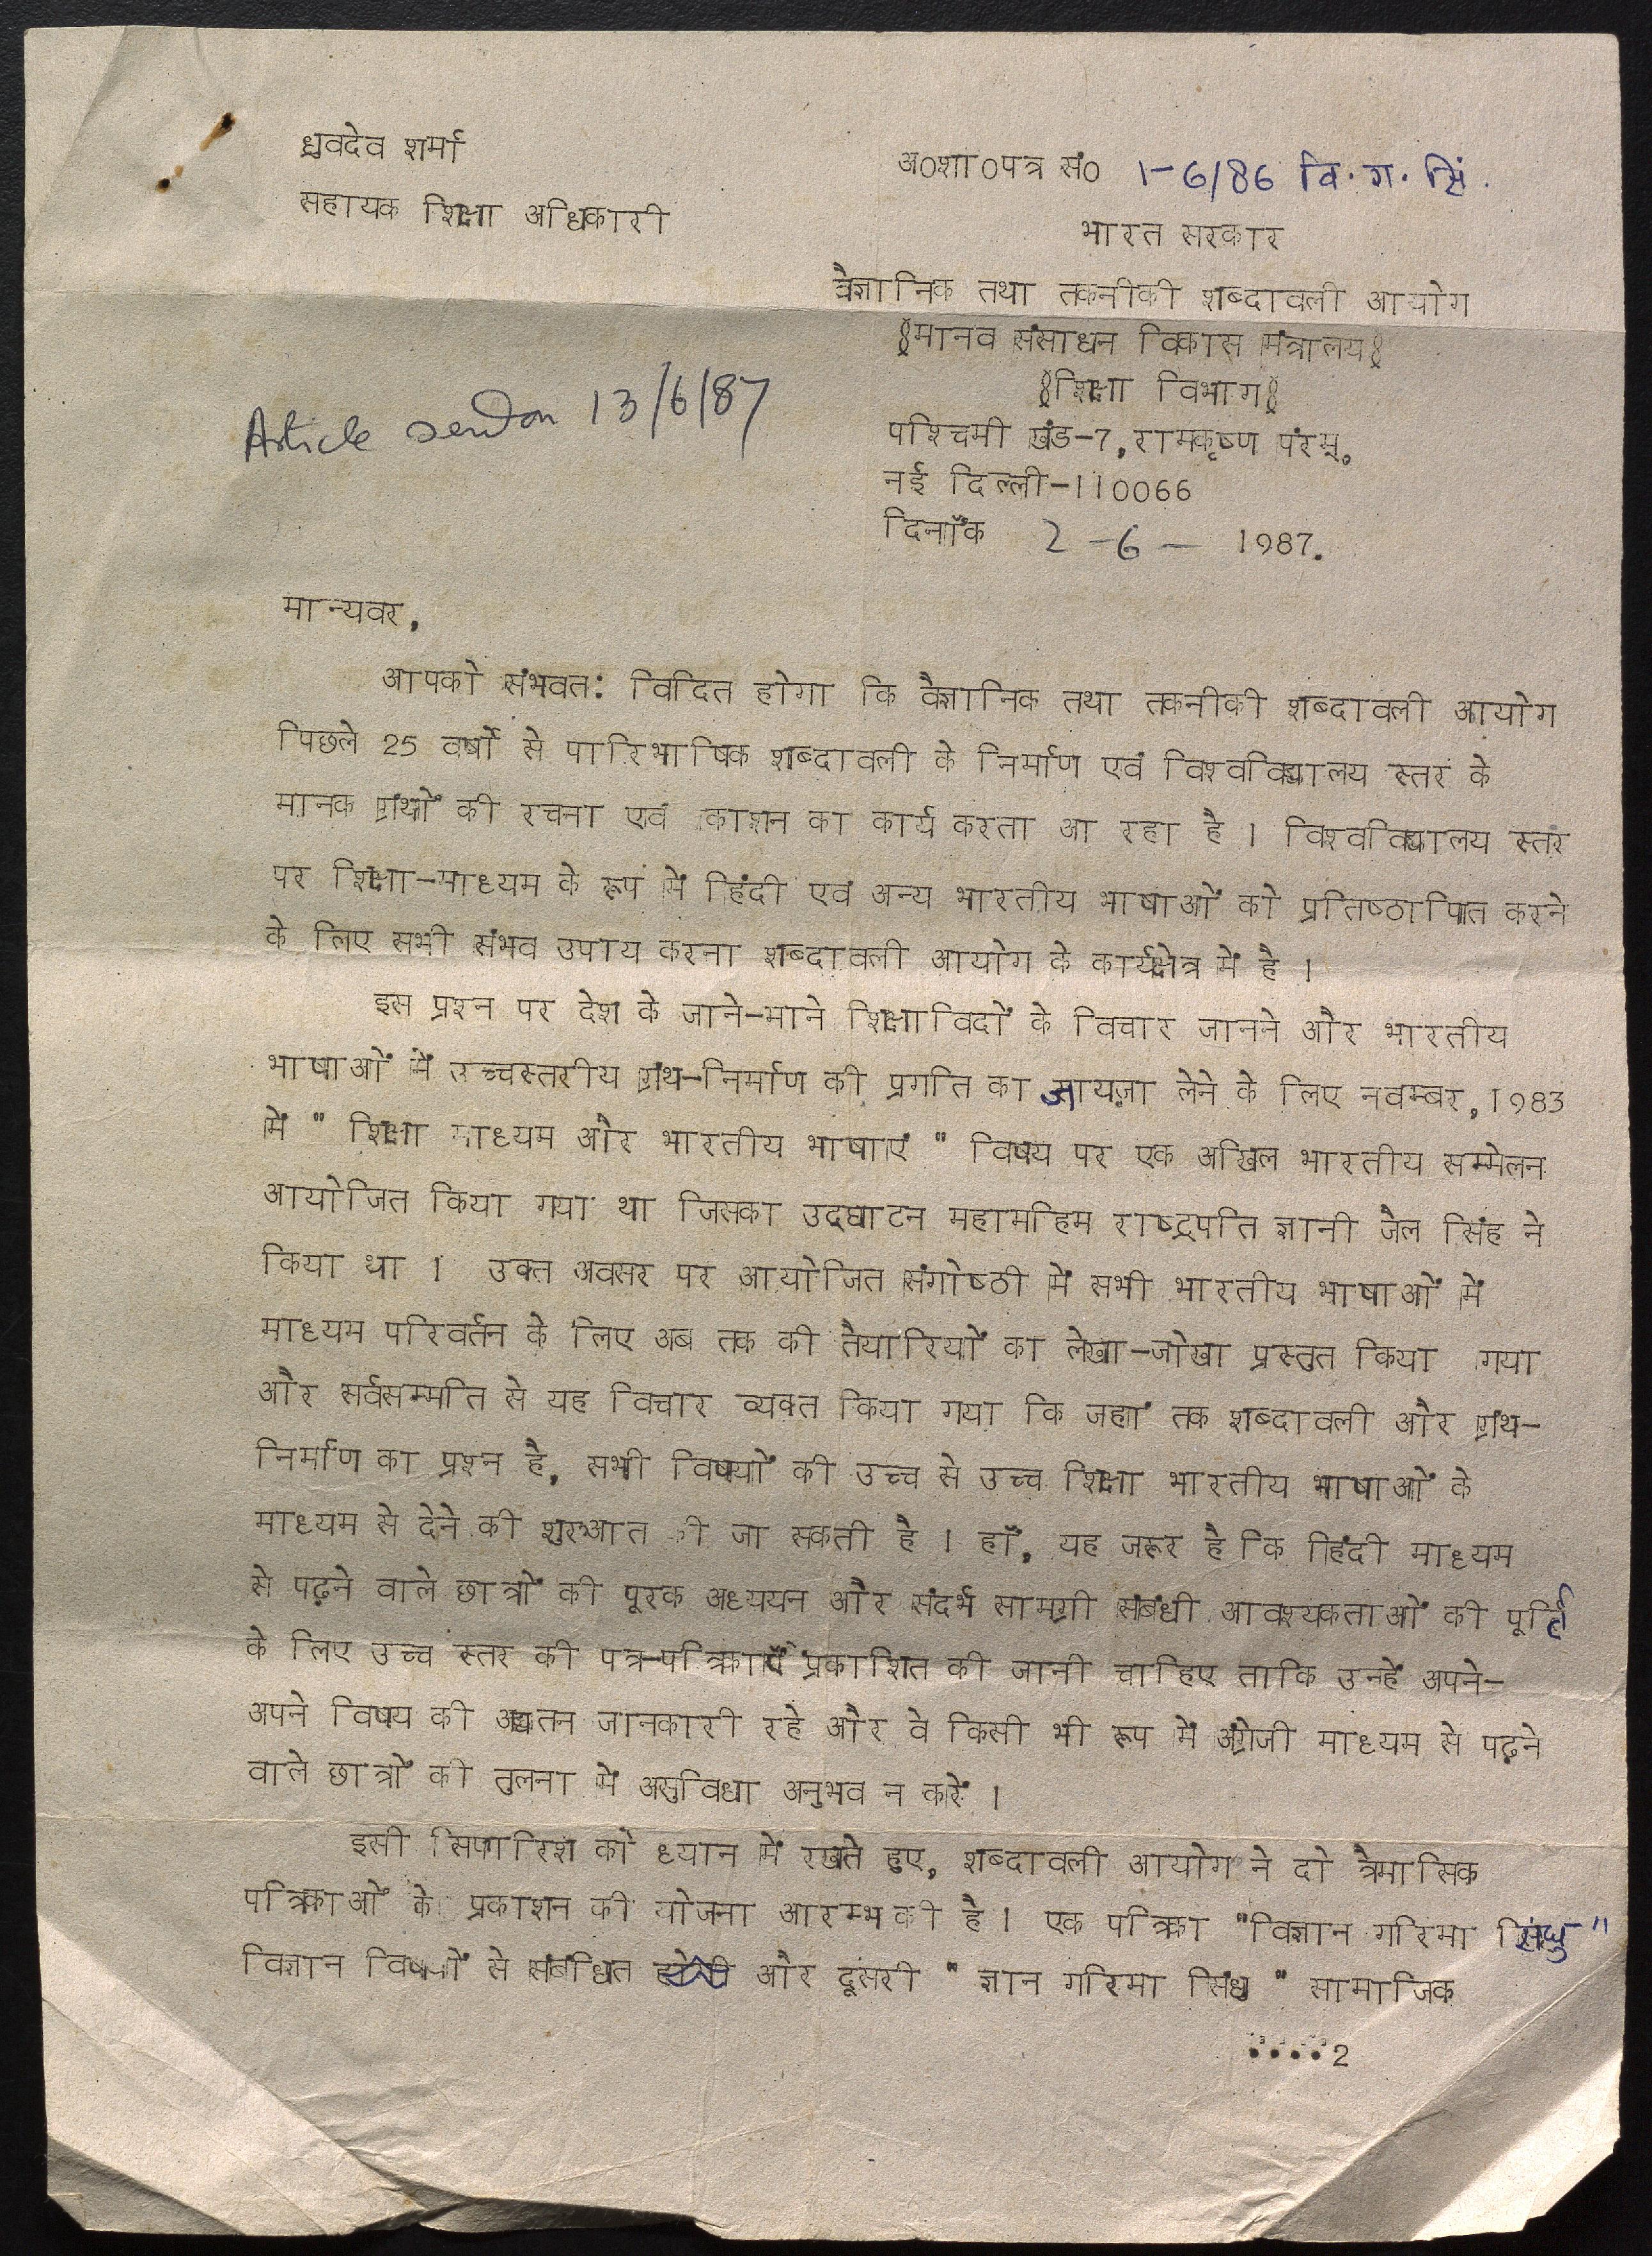 ध्रुवदेव शर्मा
सहायक शिक्षा अधिकारी
अ0शा0पत्र सं0 1-6/86 वि. ग. सिं.
भारत सरकार
वैज्ञानिक तथा तकनीकी शब्दावली आयोग
(मानव संसाधन विकास मंत्रालय)
(शिक्षा विभाग)
पश्चिमी खंड-7, रामकृष्ण पुरम्,
नई दिल्ली-110066
दिनाँक 2-6- 1987.
Article send on 13/6/87
मान्यवर,
आपको संभवत: विदित होगा कि वैज्ञानिक तथा तकनीकी शब्दावली आयोग
पिछले 25 वर्षों से पारिभाषिक शब्दावली के निर्माण एवं विश्वविद्यालय स्तर के
मानक ग्रंथों की रचना एवं प्रकाशन का कार्य करता आ रहा है । विश्वविद्यालय स्तर
पर शिक्षा-माध्यम के रूप में हिंदी एवं अन्य भारतीय भाषाओं को प्रतिष्ठापित करने
के लिए सभी संभव उपाय करना शब्दावली आयोग के कार्यक्षेत्र में है ।
इस प्रश्न पर देश के जाने-माने शिक्षाविदों के विचार जानने और भारतीय
भाषाओं में उच्चस्तरीय ग्रंथ-निर्माण की प्रगति का जायज़ा लेने के लिए नवम्बर, 1983
में " शिक्षा माध्यम और भारतीय भाषाएं " विषय पर एक अखिल भारतीय सम्मेलन
आयोजित किया गया था जिसका उद्घाटन महामहिम राष्ट्रपति ज्ञानी जैल सिंह ने
किया था । उक्त अवसर पर आयोजित संगोष्ठी में सभी भारतीय भाषाओं में
माध्यम परिवर्तन के लिए अब तक की तैयारियों का लेखा-जोखा प्रस्तुत किया गया
और सर्वसम्मति से यह विचार व्यक्त किया गया कि जहां तक शब्दावली और ग्रंथ-
निर्माण का प्रश्न है, सभी विषयों की उच्च से उच्च शिक्षा भारतीय भाषाओं के
माध्यम से देने की शुरुआत की जा सकती है । हाँ, यह जरूर है कि हिंदी माध्यम
से पढ़ने वाले छात्रों की पूरक अध्ययन और संदर्भ सामग्री संबंधी आवश्यकताओं की पूर्ति
के लिए उच्च स्तर की पत्र-पत्रिकाएँ प्रकाशित की जानी चाहिए ताकि उनहें अपने-
अपने विषय की अद्यतन जानकारी रहे और वे किसी भी रूप में अंग्रेजी माध्यम से पढ़ने
वाले छात्रों की तुलना में असुविधा अनुभव न करें ।
इसी सिफारिश को ध्यान में रखते हुए, शब्दावली आयोग ने दो त्रैमासिक
पत्रिकाओं के प्रकाशन की योजना आरम्भ की है । एक पत्रिका "विज्ञान गरिमा सिंधु"
विज्ञान विषयों से संबंधित और दूसरी " ज्ञान गरिमा सिंधु " सामाजिक
....2